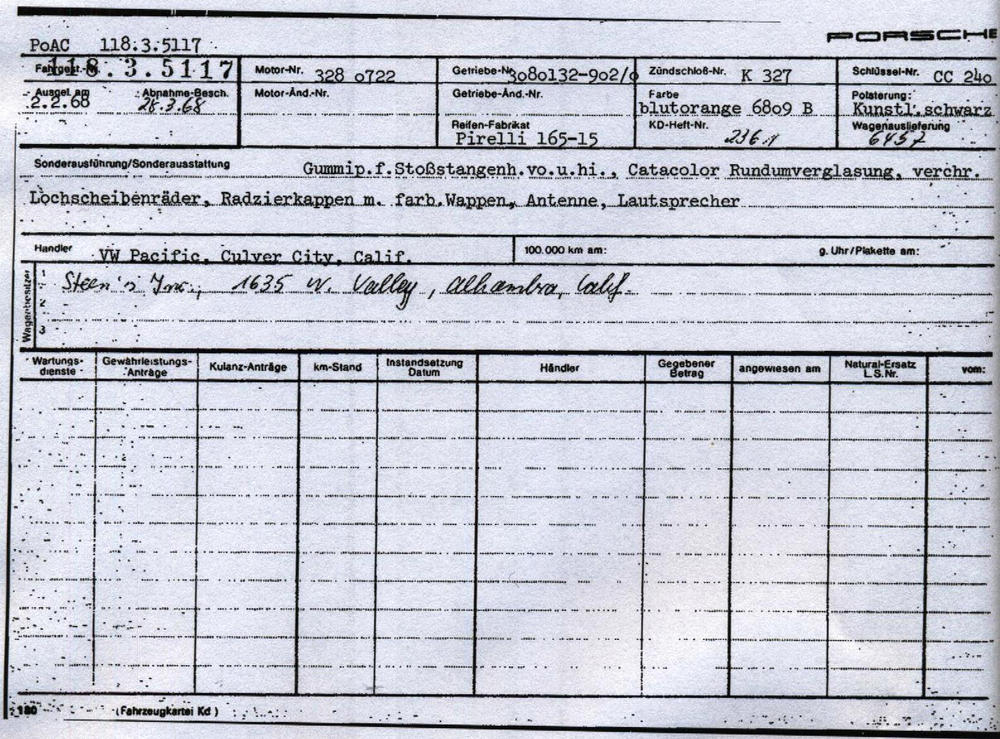 PORSCHE
PoAC 118.3.5117
Fahrgest.-Nr. 118.3.5117
Motor-Nr. 328 0722
Getriebe-Nr. 3080132-902/0
Zündschloß-Nr. K 327
Schlüssel-Nr. CC 240
Ausgel. am 2.2.68
Abnahme-Besch. 28.3.68
Motor-Änd.-Nr.
Getriebe-Änd.-Nr.
Farbe blutorange 6809 B
Polsterung: Kunstl.schwarz
Reifen-Fabrikat Pirelli 165-15
KD-Heft-Nr.
Wagenauslieferung 6457
Sonderausführung/Sonderausstattung Gummip.f.Stoßstangenh.vo.u.hi., Catacolor Rundumverglasung, verchr.
Lochscheibenräder, Radzierkappen m. farb.Wappen, Antenne, Lautsprecher
Händler VW Pacific, Culver City, Calif.
100.000 km am:
g. Uhr/Plakette am:
Wagenbesitzer
1 Steen's Inc., 1635 W. Valley, Alhambra, Calif.
2
3
Wartungs-dienste Gewährleistungs-Anträge Kulanz-Anträge km-Stand Instandsetzung Datum Händler Gegebener Betrag angewiesen am Natural-Ersatz L.S.Nr. vom:
180 (Fahrzeugkartei Kd)